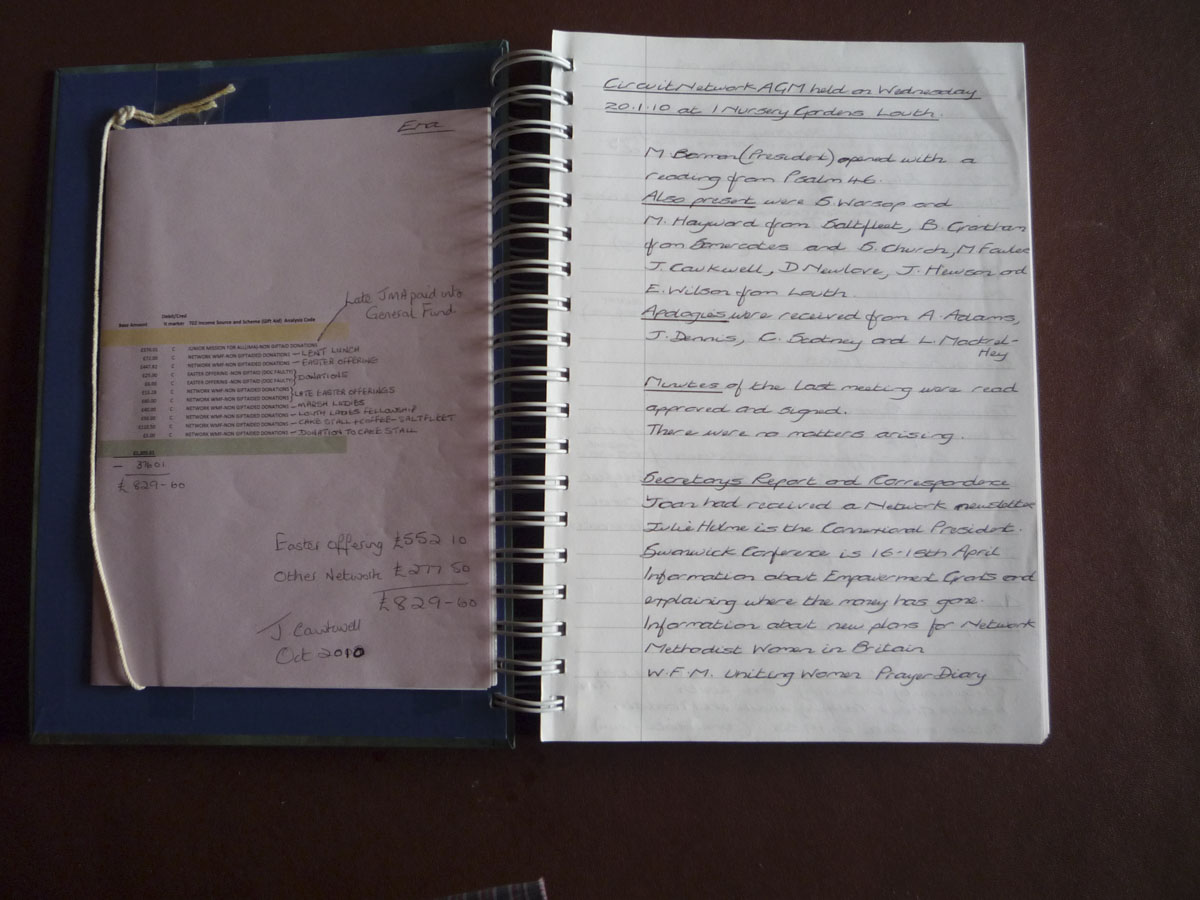 Ena
Late JMA paid into
General Fund
Base Amount Debit/Cred
it marker TDO Income Source and Scheme (Gift Aid) Analysis Code
C JUNIOR MISSION FOR ALL(JMA)-NON GIFTAID DONATIONS
C NETWORK WMF-NON GIFTAIDED DONATIONS - LENT LUNCH
C NETWORK WMF-NON GIFTAIDED DONATIONS - EASTER OFFERING
C EASTER OFFERING -NON GIFTAID (DOC FAULTY)
C EASTER OFFERING -NON GIFTAID (DOC FAULTY) } DONATIONS
C NETWORK WMF-NON GIFTAIDED DONATIONS
C NETWORK WMF-NON GIFTAIDED DONATIONS } LATE EASTER OFFERINGS
C NETWORK WMF-NON GIFTAIDED DONATIONS - MARSH LADIES
C NETWORK WMF-NON GIFTAIDED DONATIONS - LOUTH LADIES FELLOWSHIP
C NETWORK WMF-NON GIFTAIDED DONATIONS - CAKE STALL + COFFEE - SALTFLEET
C NETWORK WMF-NON GIFTAIDED DONATIONS - DONATION TO CAKE STALL
- 376 01
£ 829-60
Easter Offering £552 10
Other Network £277 50
£829-60
J Cawkwell
Oct 2010
Circuit Network AGM held on Wednesday
20.1.10 at 1 Nursery Gardens Louth.
M (President) opened with a
reading from Psalm 46.
Also present were S. Worsop and
M. Hayward from Saltfleet, B. Grantham
from Somercotes and S. Church, M
J. Cawkwell, D Newlove, J. Hewson and
E. Wilson from Louth.
Apologies were received from A. Adams,
J. Dennis, C. Scotney and L. Mackrel-
Hey
Minutes of the last meeting were read
approved and signed.
There were no matters arising.
Secretarys Report and Correspondence
Joan had received a Network newsletter
Julie Hulme is the Connexional President.
Swanwick Conference is 16-18th April
Information about Empowerment Grants and
explaining where the money has gone.
Information about new plans for Network
Methodist Women in Britain
W.F.M. Uniting Women Prayer Diary